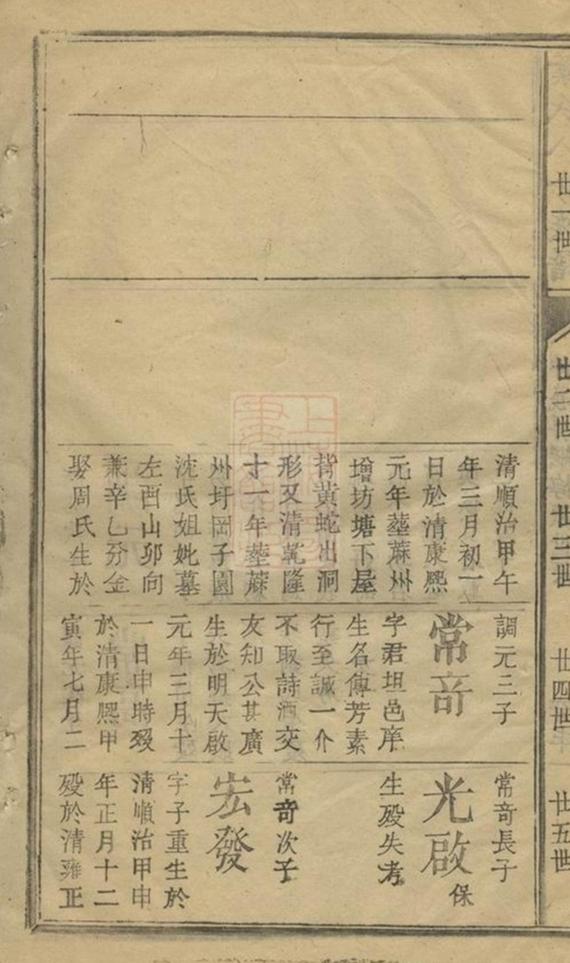 廿一世
廿二世
廿三世
廿四世
廿五世
清順治甲午
年三月初一
日於清康熙
元年塟蔴州
增坊塘下屋
背黃蛇出洞
形又清乾隆
十一年塟蔴
州圩岡子園
沈氏姐妣墓
左酉山卯向
兼辛乙分金
娶周氏生於
調元三子
常竒
字君坦邑庠
生名傳芳素
行至誠一介
不取詩酒交
友知公甚廣
生於明天啟
元年三月十
一日申時殁
於清康熙甲
寅年七月二
常竒長子
光啟保
生殁失考
常竒次子
宏發
字子重生於
清順治甲申
年正月十二
殁於清雍正